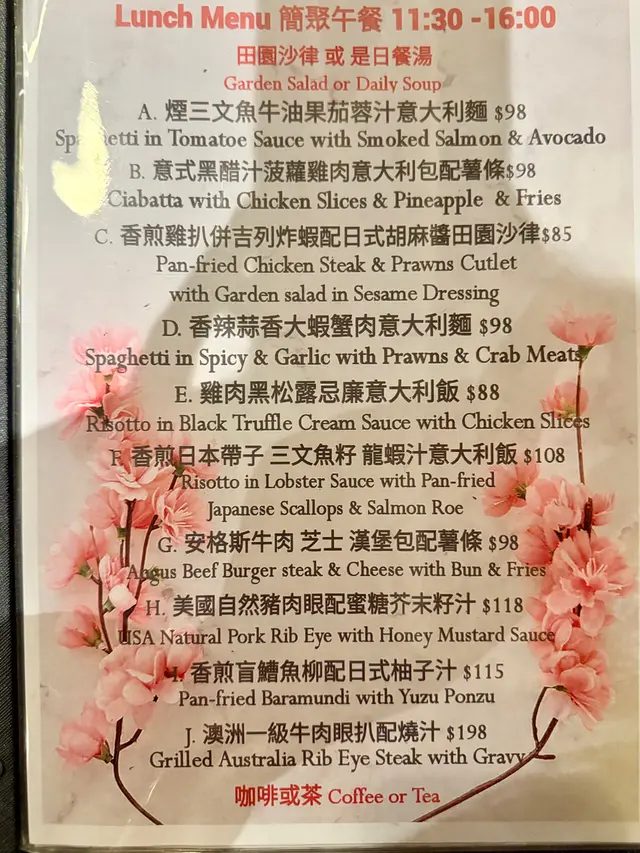 Lunch Menu 簡聚午餐 11:30 -16:00
田園沙律 或 是日餐湯
Garden Salad or Daily Soup
A. 煙三文魚牛油果茄蓉汁意大利麵 $98
Spaghetti in Tomatoe Sauce with Smoked Salmon & Avocado
B. 意式黑醋汁菠蘿雞肉意大利包配薯條$98
Ciabatta with Chicken Slices & Pineapple & Fries
C. 香煎雞扒併吉列炸蝦配日式胡麻醬田園沙律$85
Pan-fried Chicken Steak & Prawns Cutlet
with Garden salad in Sesame Dressing
D. 香辣蒜香大蝦蟹肉意大利麵 $98
Spaghetti in Spicy & Garlic with Prawns & Crab Meats
E. 雞肉黑松露忌廉意大利飯 $88
Risotto in Black Truffle Cream Sauce with Chicken Slices
F. 香煎日本帶子 三文魚籽 龍蝦汁意大利飯 $108
Risotto in Lobster Sauce with Pan-fried
Japanese Scallops & Salmon Roe
G. 安格斯牛肉 芝士 漢堡包配薯條 $98
Angus Beef Burger steak & Cheese with Bun & Fries
H. 美國自然豬肉眼配蜜糖芥末籽汁 $118
USA Natural Pork Rib Eye with Honey Mustard Sauce
I. 香煎盲鰽魚柳配日式柚子汁 $115
Pan-fried Baramundi with Yuzu Ponzu
J. 澳洲一級牛肉眼扒配燒汁 $198
Grilled Australia Rib Eye Steak with Gravy
咖啡或茶 Coffee or Tea